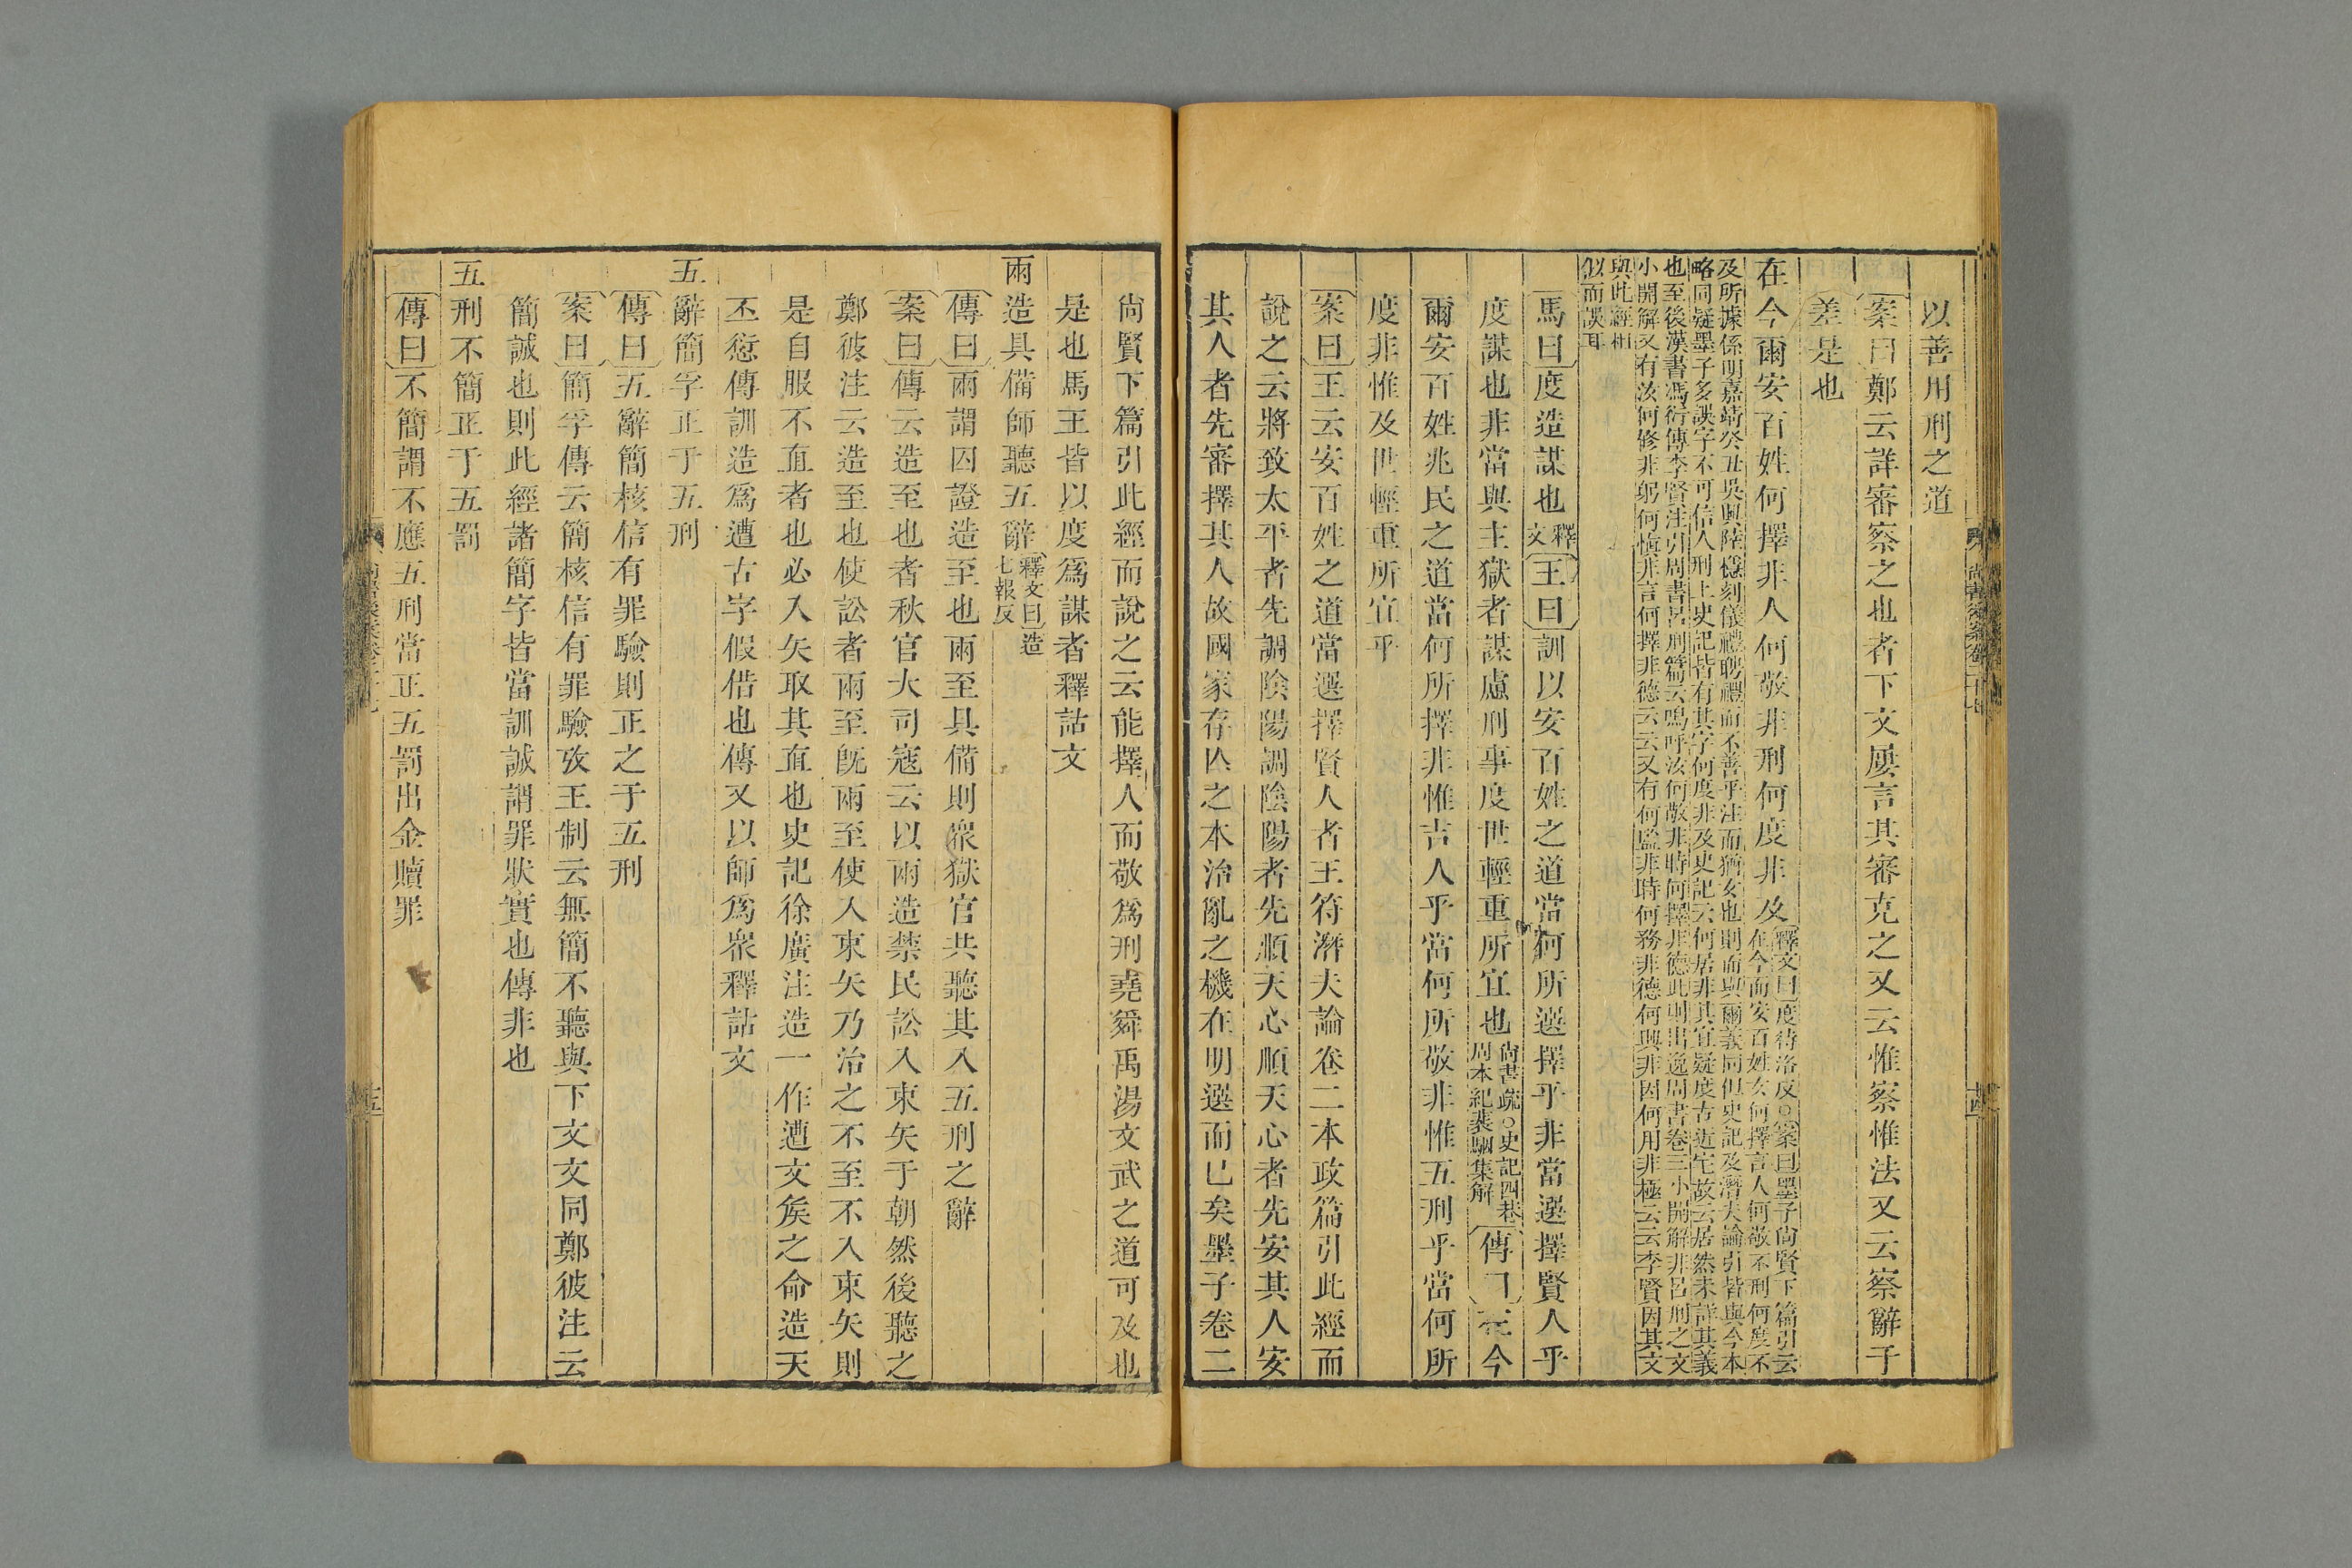 以善用刑之道
案曰鄭云詳審察之也者下文屢言其審克之又云惟察惟法又云察辭于
差是也
在今爾安百姓何擇非人何敬非刑何度非及
釋文曰度待洛反○案曰墨子尚賢下篇引云
在今而安百姓女何擇言人何敬不刑何度不
及所據係明嘉靖癸丑吳興陸穩刻儀禮聘禮而不善乎注而猶女也則而與爾義同但史記及潛夫論引皆與今本
略同疑墨子多誤字不可信人刑上史記皆有其字何度非及史記云何居非其宜疑度古近宅故云居然未詳其義
也至後漢書馮衍傳李賢注引周書呂刑篇云嗚呼汝何敬非時何擇非德此則出逸周書卷三小開解非呂刑之文
小開解又有汝何修非躬何愼非言何擇非德云云又有何監非時何務非德何興非因何用非極云云李賢因其文
與此經相
似而誤耳
馬曰度造謀也釋文王曰訓以安百姓之道當何所選擇乎非當選擇賢人乎
度謀也非當與主獄者謀慮刑事度世輕重所宜也尚書疏○史記四卷周本紀裴駰集解傳曰在今
爾安百姓兆民之道當何所擇非惟吉人乎當何所敬非惟五刑乎當何所
度非惟及世輕重所宜乎
案曰王云安百姓之道當選擇賢人者王符潛夫論卷二本政篇引此經而
說之云將致太平者先調陰陽調陰陽者先順天心順天心者先安其人安
其人者先審擇其人故國家存亾之本治亂之機在明選而已矣墨子卷二
尚賢下篇引此經而說之云能擇人而敬爲刑堯舜禹湯文武之道可及也
是也馬王皆以度爲謀者釋詁文
兩造具備師聽五辭釋文曰造七報反
傳曰兩謂囚證造至也兩至具備則衆獄官共聽其入五刑之辭
案曰傳云造至也者秋官大司寇云以兩造禁民訟入束矢于朝然後聽之
鄭彼注云造至也使訟者兩至旣兩至使入束矢乃治之不至不入束矢則
是自服不直者也必入矢取其直也史記徐廣注造一作遭文矦之命造天
丕愆傳訓造爲遭古字假借也傳又以師爲衆釋詁文
五辭簡孚正于五刑
傳曰五辭簡核信有罪驗則正之于五刑
案曰簡孚傳云簡核信有罪驗攷王制云無簡不聽與下文文同鄭彼注云
簡誠也則此經諸簡字皆當訓誠謂罪狀實也傳非也
五刑不簡正于五罰
傳曰不簡謂不應五刑當正五罰出金贖罪